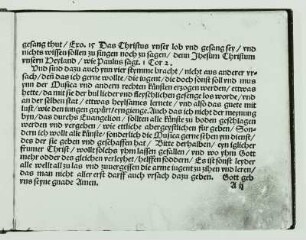 gesang thut / Exo. 15 Das Christus vnser lob vnd gesang sey / vnd
nichts wissen sollen zu singen noch zu sagen / denn Jhesum Christum
vnsern Heyland / wie Paulus sagt. 1 Cor 2.
Vnd sind dazu auch ynn vier stymme bracht / nicht aus anderer vr-
sach / denn das ich gerne wollte / die iugent / die doch sonst soll vnd mus
ynn der Musica vnd andern rechten künsten erzogen werden / etwas
hette / da mit sie der bul lieder vnd fleyschlichen gesenge los werde / vnd
an der selben stat / etwas heylsames lernete / vnd also das guete mit
lust / wie den iungen gepürt / eyngienge. Auch das ich nicht der meynung
byn / das durchs Euangelion / sollten alle künste zu boden geschlagen
werden vnd vergehen / wie ettliche abergeystlichen fur geben / Son-
dern ich wollt alle künste / sonderlich die Musica gerne sehen ym dienst /
des der sie geben vnd geschaffen hat / Bitte derhalben / eyn iglicher
frumer Christ / wollt solchs yhm lassen gefallen / vnd wo yhm Gott
mehr odder des gleichen verleyhet / helffen foddern / Es ist sonst leyder
alle wellt all zu las vnd zuuergessen die arme iugent zu zihen vnd leren /
das man nicht aller erst darff auch vrsach dazu geben. Gott geb
vns seyne gnade Amen.
A ij